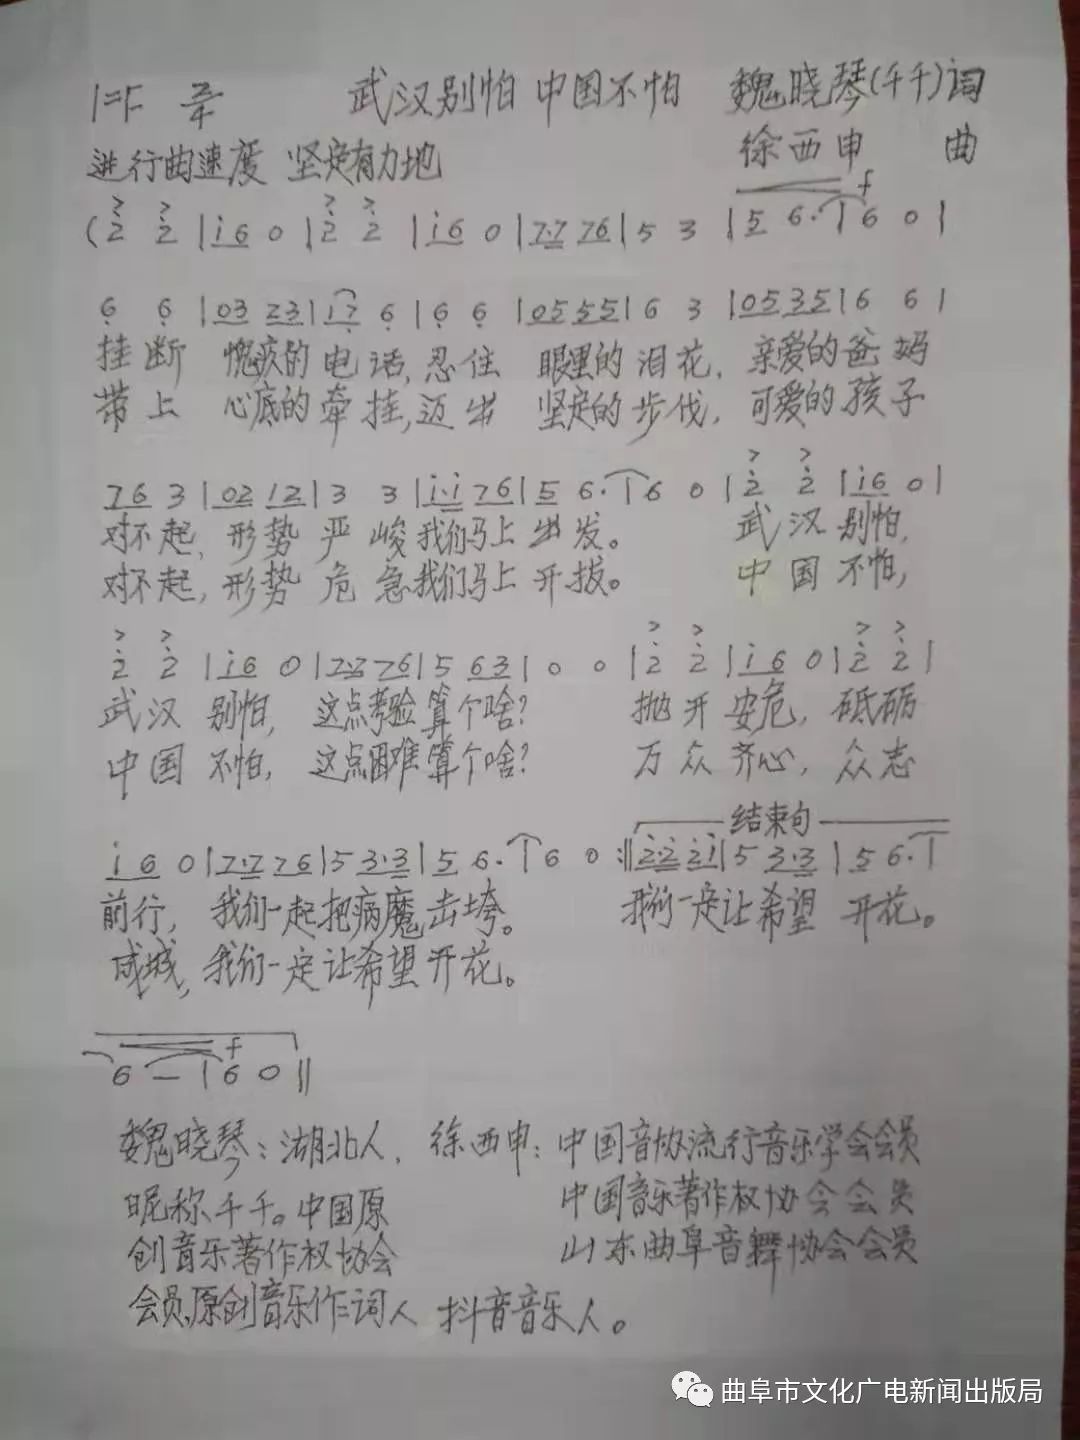 1=F 2/4 武汉别怕 中国不怕 魏晓琴(千千)词
进行曲速度 坚定有力地 徐西申 曲
f
(2 2 |i 6 0 |2 2 |i 6 0 |7·7 76| 5 3 |5 6·|6 0 |
6 6 |03 23|i7 6 |6 6 |05 55|6 3 |05 35|6 6 |
挂断 愧疚的电话,忍住 眼里的泪花,亲爱的爸妈
带上 心底的牵挂,迈出 坚定的步伐,可爱的孩子
76 3 |02 12|3 3 |i·i 76|5 6·|6 0 |2 2 |i6 0|
对不起,形势 严 峻我们马上 出发。 武汉别怕,
对不起,形势 危 急我们马上 开拔。 中国不怕,
2 2 |i 6 0 |7·7 76|5 63|0 0 |2 2 |i 6 0|2 2 |
武汉 别怕, 这点考验算个啥? 抛开安危,砥砺
中国 不怕, 这点困难算个啥? 万众齐心,众志
结束句
i 6 0|7·7 76|5 3·3|5 6·|6 0 :‖2·2 2i|5 3·3|5 6·|
前行, 我们一起把病魔击垮。 我们一定让希望 开花。
成城,我们一定让希望开花。
f
6 — |6 0‖
魏晓琴:湖北人, 徐西申:中国音协流行音乐学会会员
昵称千千。中国原 中国音乐著作权协会会员
创音乐著作权协会 山东曲阜音舞协会会员
会员,原创音乐作词人 抖音音乐人。
曲阜市文化广电新闻出版局